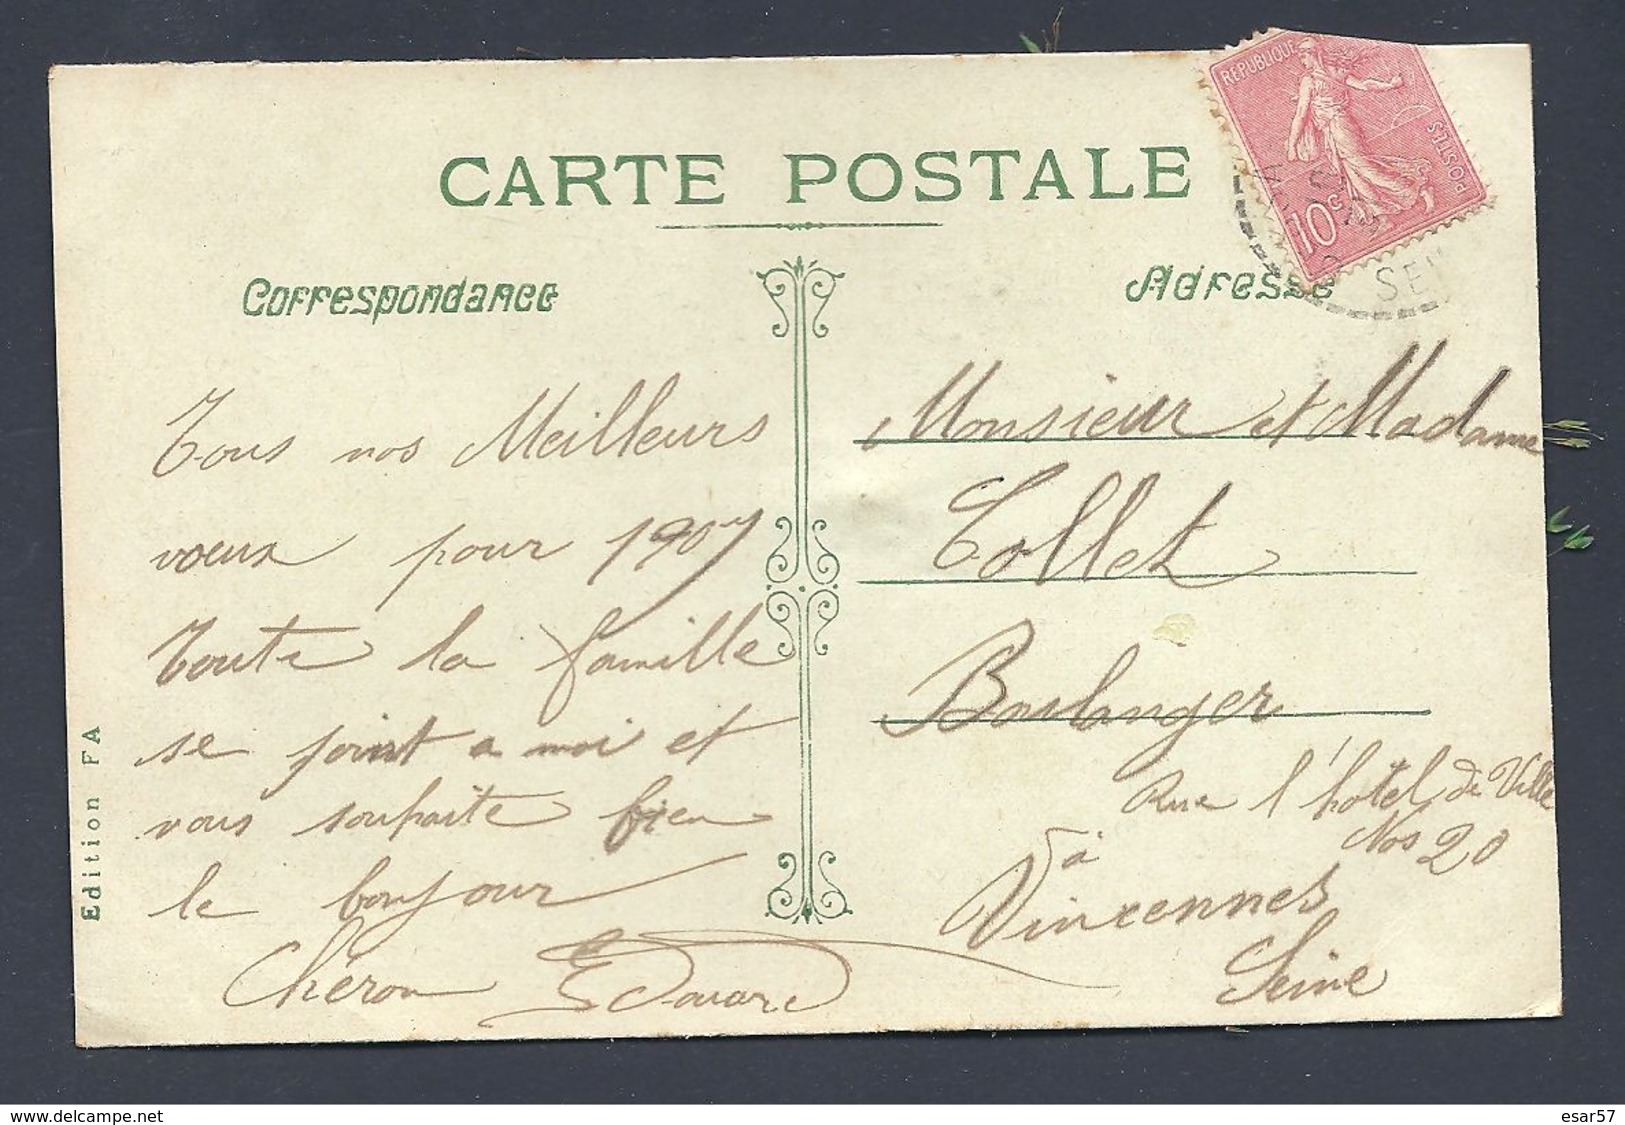 CARTE POSTALE
Correspondance
Adresse
REPUBLIQUE
POSTES
10c
SEI
Tous nos Meilleurs
voeux pour 1907
toute la famille
se joint a moi et
vous souhaite bien
le bonjour
Chéron Edouard
Monsieur et Madame
Collet
Boulanger
Rue l'hôtel de Ville
Nos 20
à
Vincennes
Seine
Edition FA
www.delcampe.net
esar57